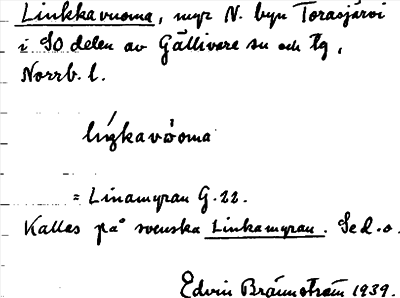 Linkkavuoma, myr N. byn Torasjärvi
i SO delen av Gällivare sn och tg,
Norrb. l.
= Linamyran G. 22.
Kallas på svenska Linkamyran. Se d. o.
Edvin Brännström 1939.